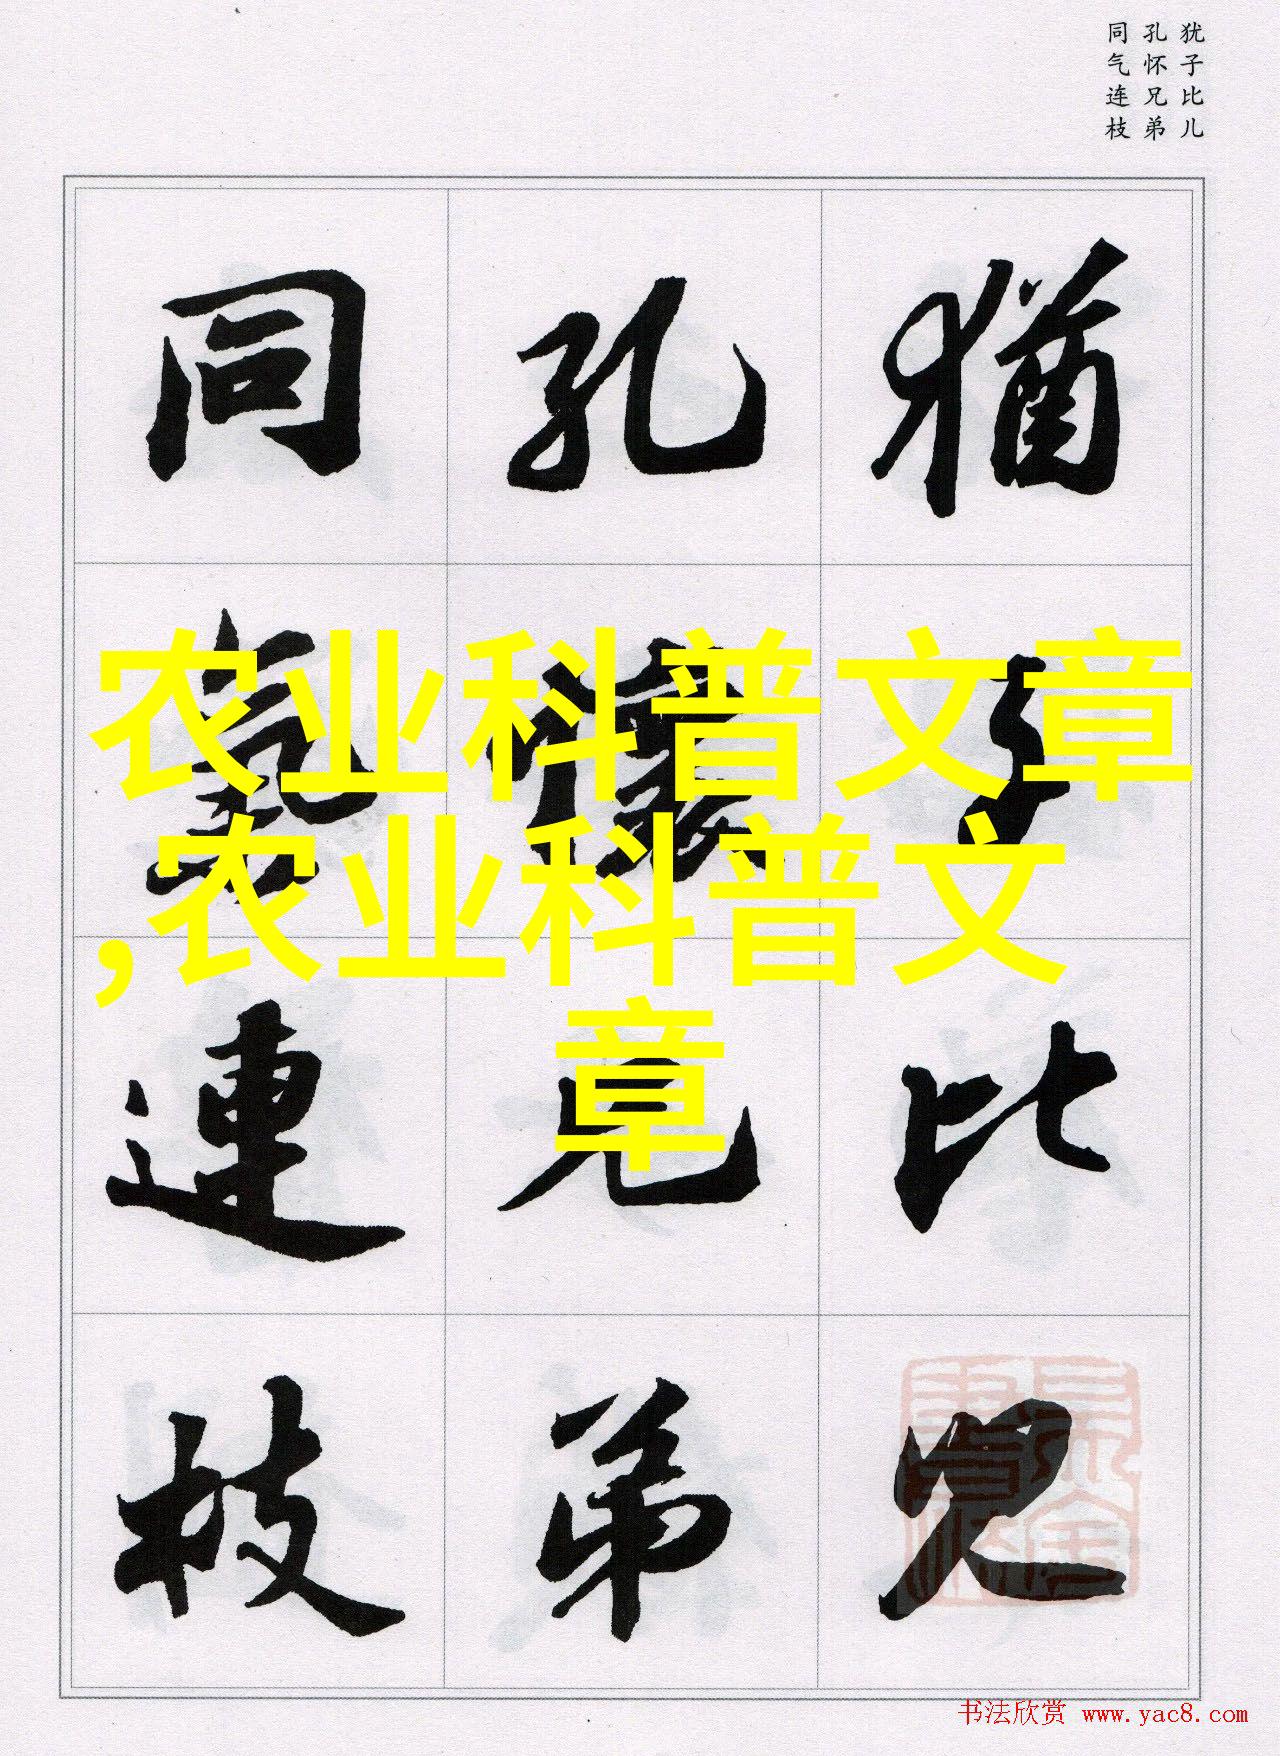 犹子比儿
孔怀兄弟
同气连枝
猶子比兒
孔懷兄弟
同氣連枝
农业科普文章
,农业科普文
章
书法欣赏 www.yac8.com